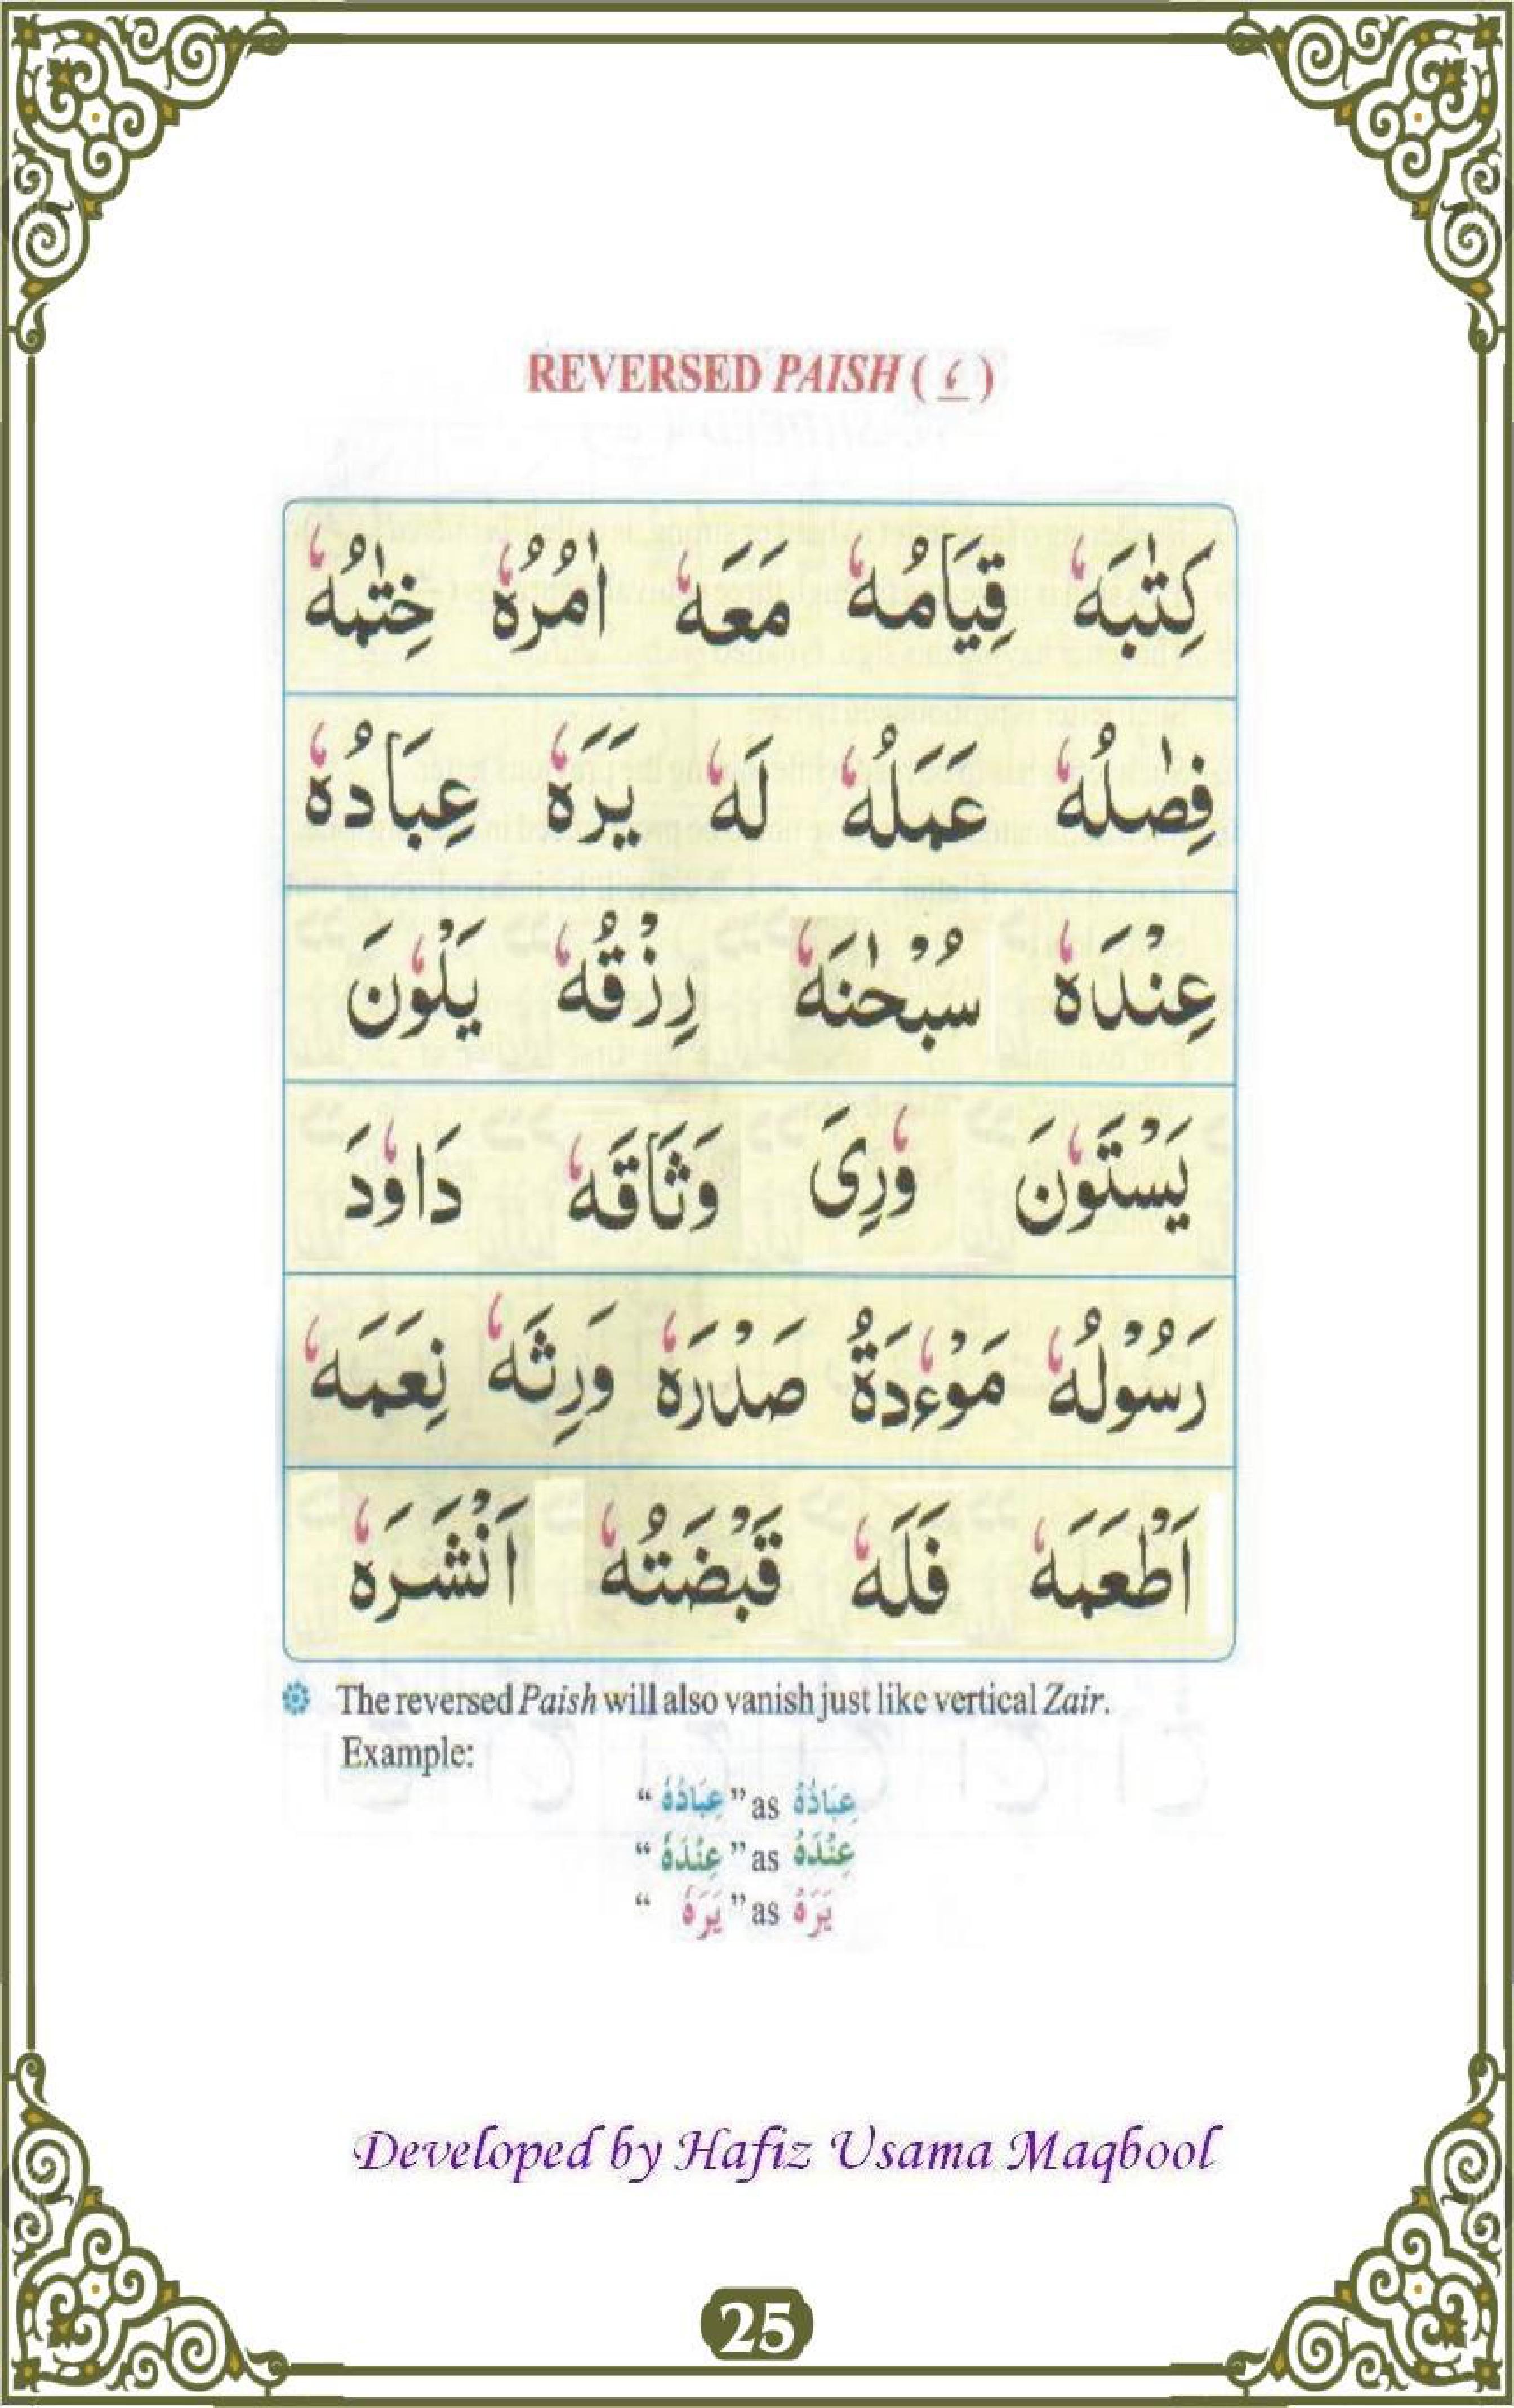 REVERSED PAISH ( ٗ )
كِتٰبَهٗ قِيَامُهٗ مَعَهٗ اٰمُرُهٗ خِتٰمُهٗ
فِصٰلُهٗ عَمَلُهٗ لَهٗ يَرَهٗ عِبَادُهٗ
عِنْدَهٗ سُبْحٰنَهٗ رِزْقُهٗ يَلْوٗنَ
يَسْتَوٗنَ وٗرِىَ وَثَاقَهٗ دَاوٗدَ
رَسُوْلُهٗ مَوْءٗدَةُ صَدْرَهٗ وَرِثَهٗ نِعَمَهٗ
اَطْعَمَهٗ فَلَهٗ قَبْضَتُهٗ اَنْشَرَهٗ
The reversed Paish will also vanish just like vertical Zair.
Example:
“ عِبَادُهٗ ” as عِبَادُهُ
“ عِنْدَهٗ ” as عِنْدَهُ
“ يَرَهٗ ” as يَرَهُ
Developed by Hafiz Usama Maqbool
25